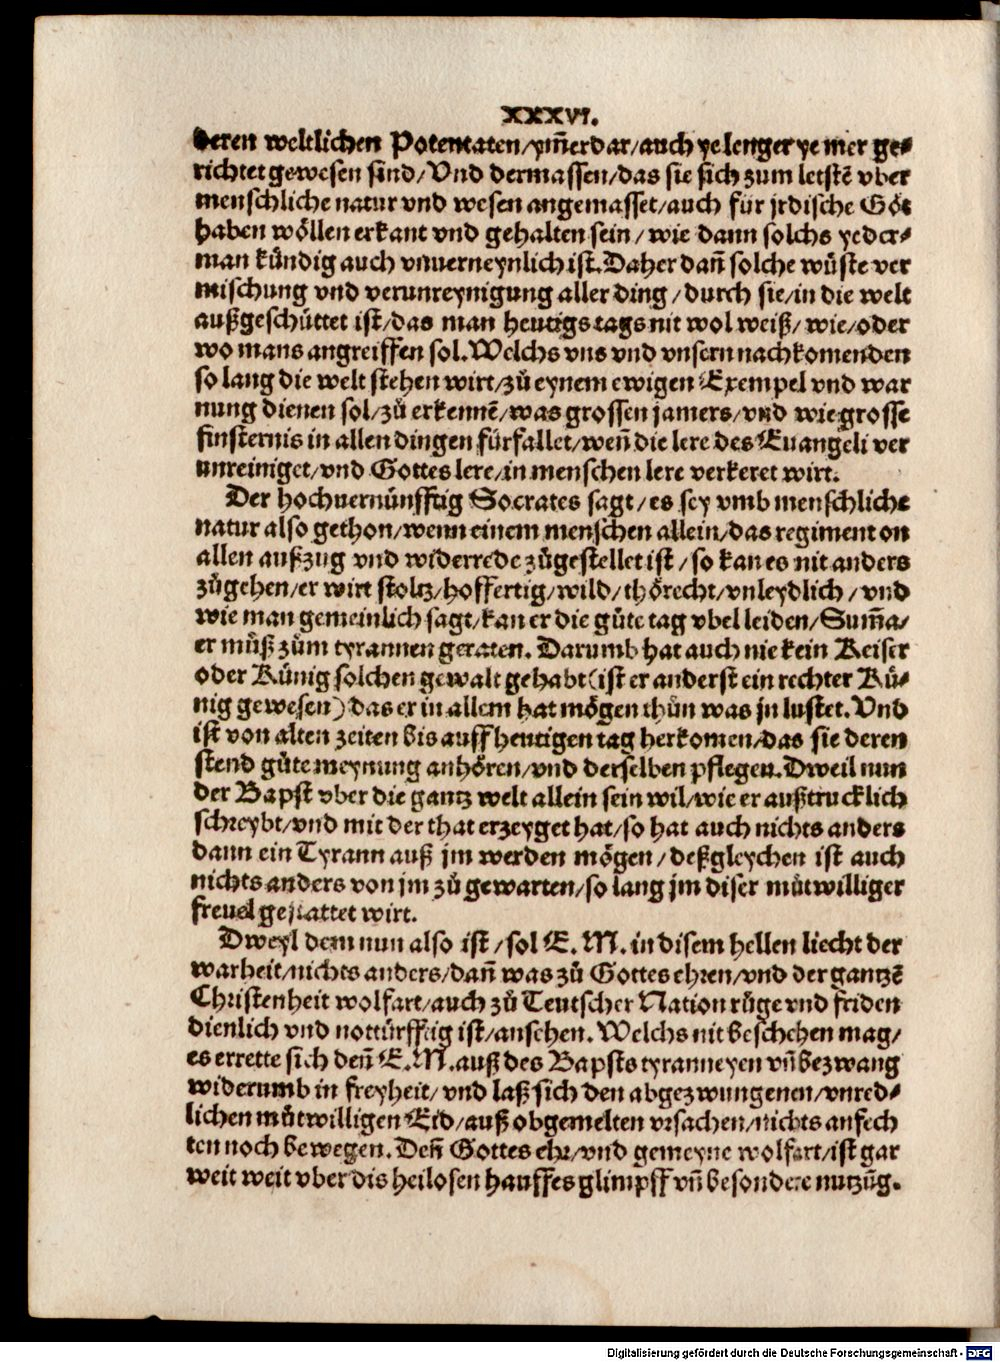 XXXVI.
deren weltlichen Potentaten/ym̃erdar/auch ye lenger ye mer ge⸗
richtet gewesen sind/Vnd dermassen/das sie sich zum letstẽ vber
menschliche natur vnd wesen angemasset/auch für jrdische Göt
haben wöllen erkant vnd gehalten sein/wie dann solchs yeder⸗
man kündig auch vnuerneynlich ist.Daher dañ solche wüste ver
mischung vnd verunreynigung aller ding/durch sie/in die welt
außgeschüttet ist/das man heutigs tags nit wol weiß/wie/oder
wo mans angreiffen sol.Welchs vns vnd vnsern nachkomenden
so lang die welt stehen wirt/zů eynem ewigen Exempel vnd war
nung dienen sol/zů erkennẽ/was grossen jamers/vnd wie grosse
finsternis in allen dingen fürfallet/weñ die lere des Euangeli ver
unreiniget/vnd Gottes lere/in menschen lere verkeret wirt.
Der hochuernünfftig Socrates sagt/es sey vmb menschliche
natur also gethon/wenn einem menschen allein/das regiment on
allen außzug vnd widerrede zůgestellet ist/so kan es nit anders
zůgehen/er wirt stoltz/hoffertig/wild/thörecht/vnleydlich/vnd
wie man gemeinlich sagt/kan er die gůte tag vbel leiden/Sum̃a/
er můß zům tyrannen geraten. Darumb hat auch nie kein Keiser
oder Künig solchen gewalt gehabt(ist er anderst ein rechter Kü⸗
nig gewesen)das er in allem hat mögen thůn was jn lustet.Vnd
ist von alten zeiten bis auff heutigen tag herkomen/das sie deren
stend gůte meynung anhören/vnd derselben pflegen.Dweil nun
der Bapst vber die gantz welt allein sein wil/wie er außtrucklich
schreybt/vnd mit der that erzeyget hat/so hat auch nichts anders
dann ein Tyrann auß jm werden mögen/deßgleychen ist auch
nichts anders von jm zů gewarten/so lang jm diser můtwilliger
freuel gestattet wirt.
Dweyl dem nun also ist/sol E. M. in disem hellen liecht der
warheit/nichts anders/dañ was zů Gottes ehren/vnd der gantzẽ
Christenheit wolfart/auch zů Teutscher Nation růge vnd friden
dienlich vnd nottürfftig ist/ansehen. Welchs nit beschehen mag/
es errette sich deñ E. M. auß des Bapsts tyranneyen vñ bezwang
widerumb in freyheit/vnd laß sich den abgezwungenen/vnred⸗
lichen můtwilligen Eid/auß obgemelten vrsachen/nichts anfech
ten noch bewegen. Deñ Gottes ehr/vnd gemeyne wolfart/ist gar
weit weit vber dis heilosen hauffes glimpff vñ besondere nutzũg.
Digitalisierung gefördert durch die Deutsche Forschungsgemeinschaft - DFG